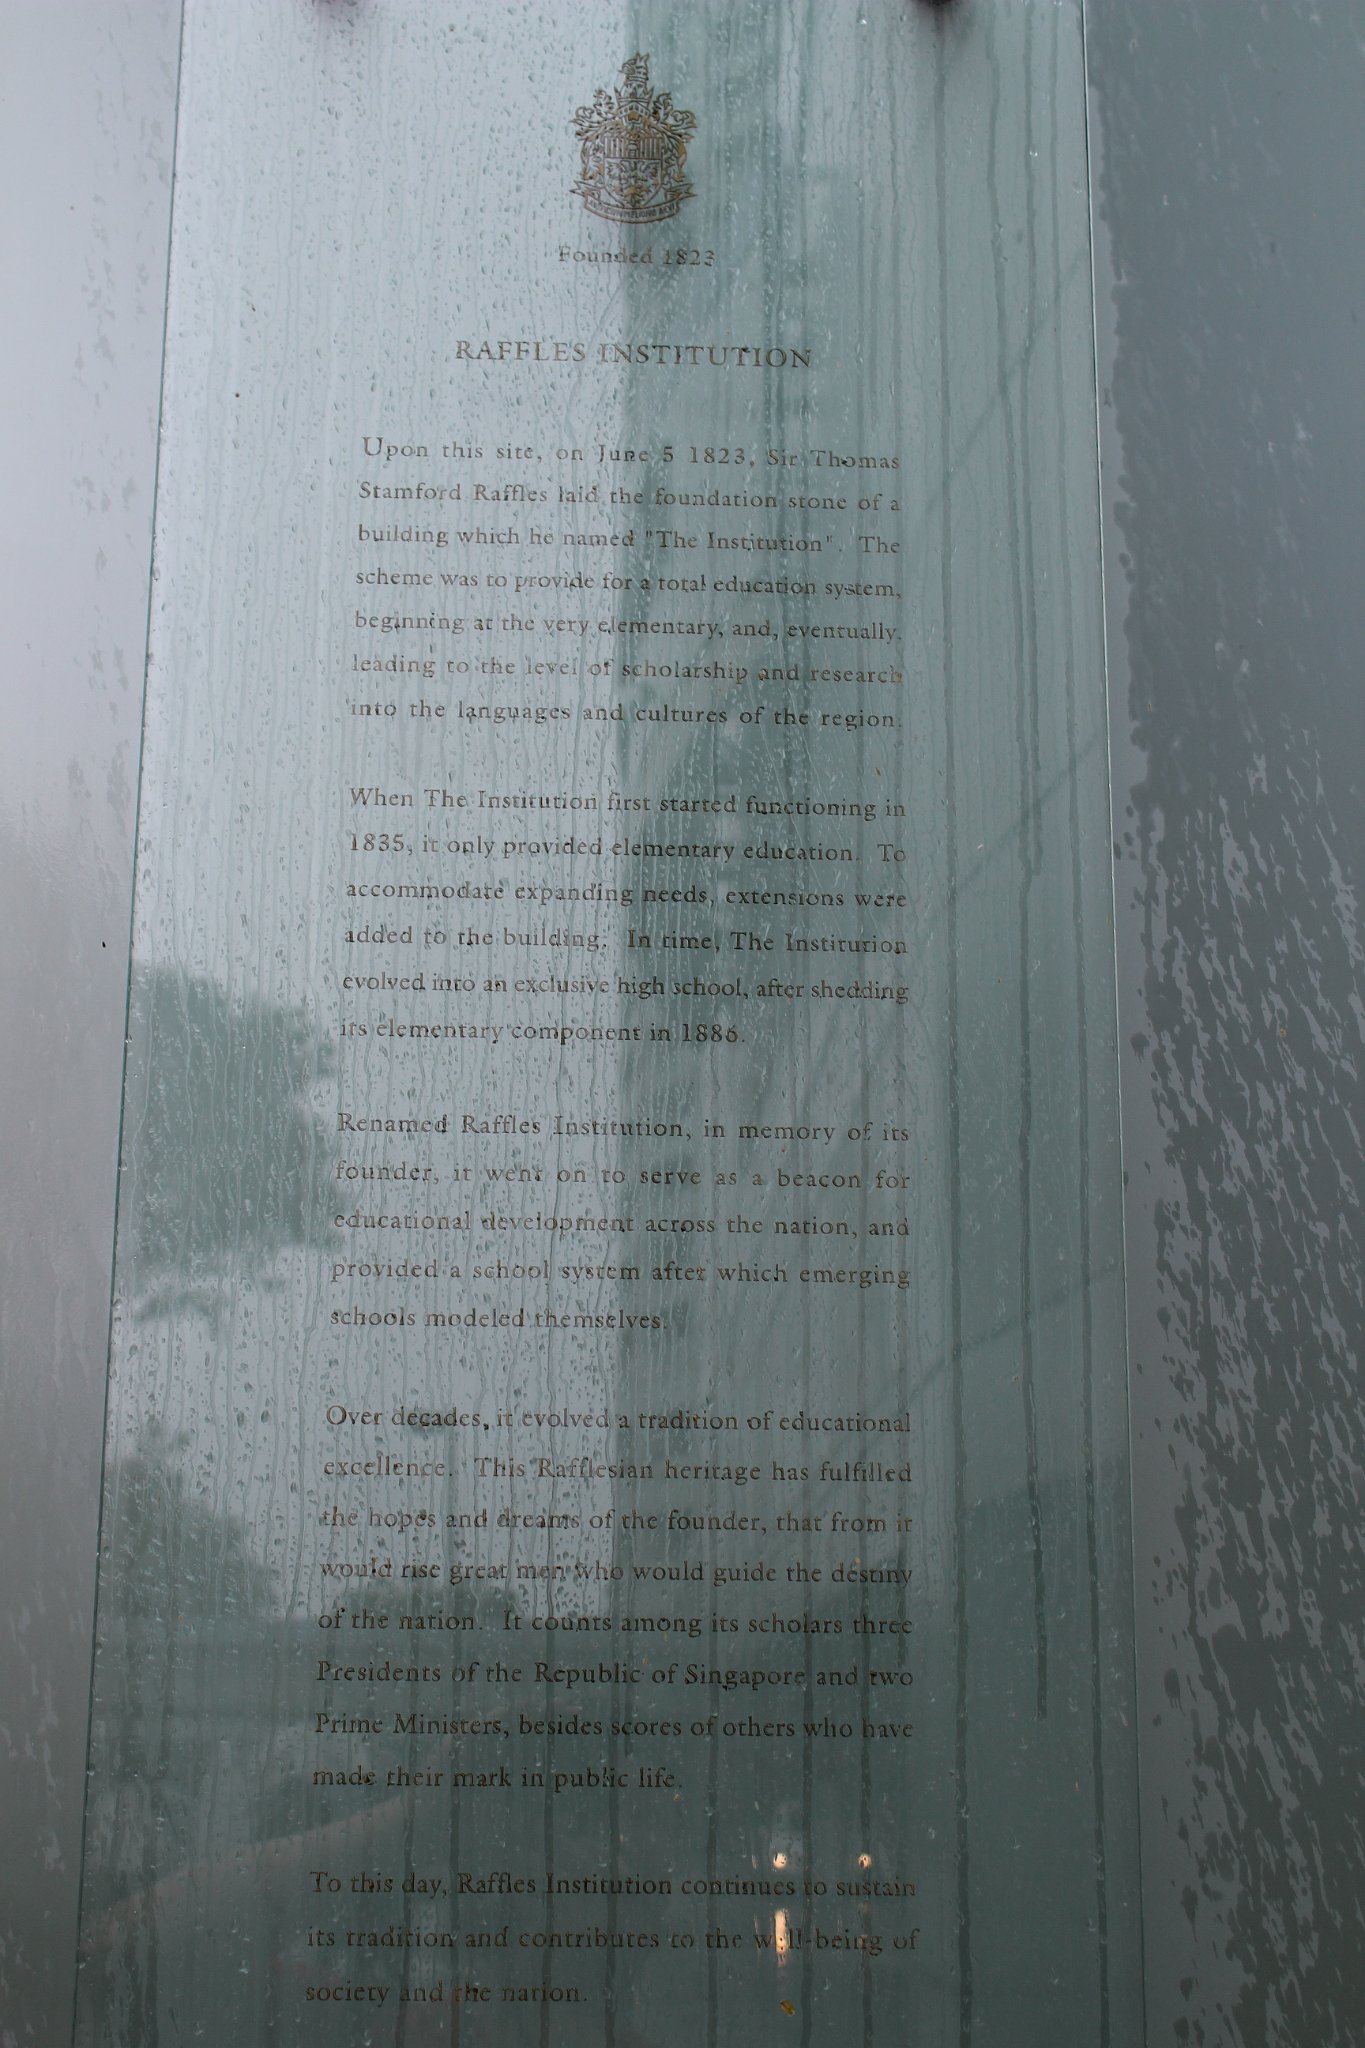 Founded 1823
RAFFLES INSTITUTION
Upon this site, on June 5 1823, Sir Thomas
Stamford Raffles laid the foundation stone of a
building which he named "The Institution". The
scheme was to provide for a total education system,
beginning at the very elementary, and, eventually,
leading to the level of scholarship and research
into the languages and cultures of the region.
When The Institution first started functioning in
1835, it only provided elementary education. To
accommodate expanding needs, extensions were
added to the building. In time, The Institution
evolved into an exclusive high school, after shedding
its elementary component in 1886.
Renamed Raffles Institution, in memory of its
founder, it went on to serve as a beacon for
educational development across the nation, and
provided a school system after which emerging
schools modeled themselves.
Over decades, it evolved a tradition of educational
excellence. This Rafflesian heritage has fulfilled
the hopes and dreams of the founder, that from it
would rise great men who would guide the destiny
of the nation. It counts among its scholars three
Presidents of the Republic of Singapore and two
Prime Ministers, besides scores of others who have
made their mark in public life.
To this day, Raffles Institution continues to sustain
its tradition and contributes to the well-being of
society and the nation.